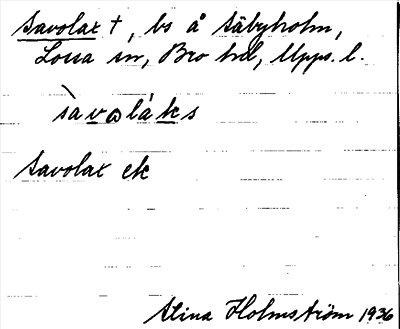 Savolax †, bs å Säbyholm,
Lossa sn, Bro hd, Upps. l.
sàvaláks
Savolax ek
Stina Holmström 1936